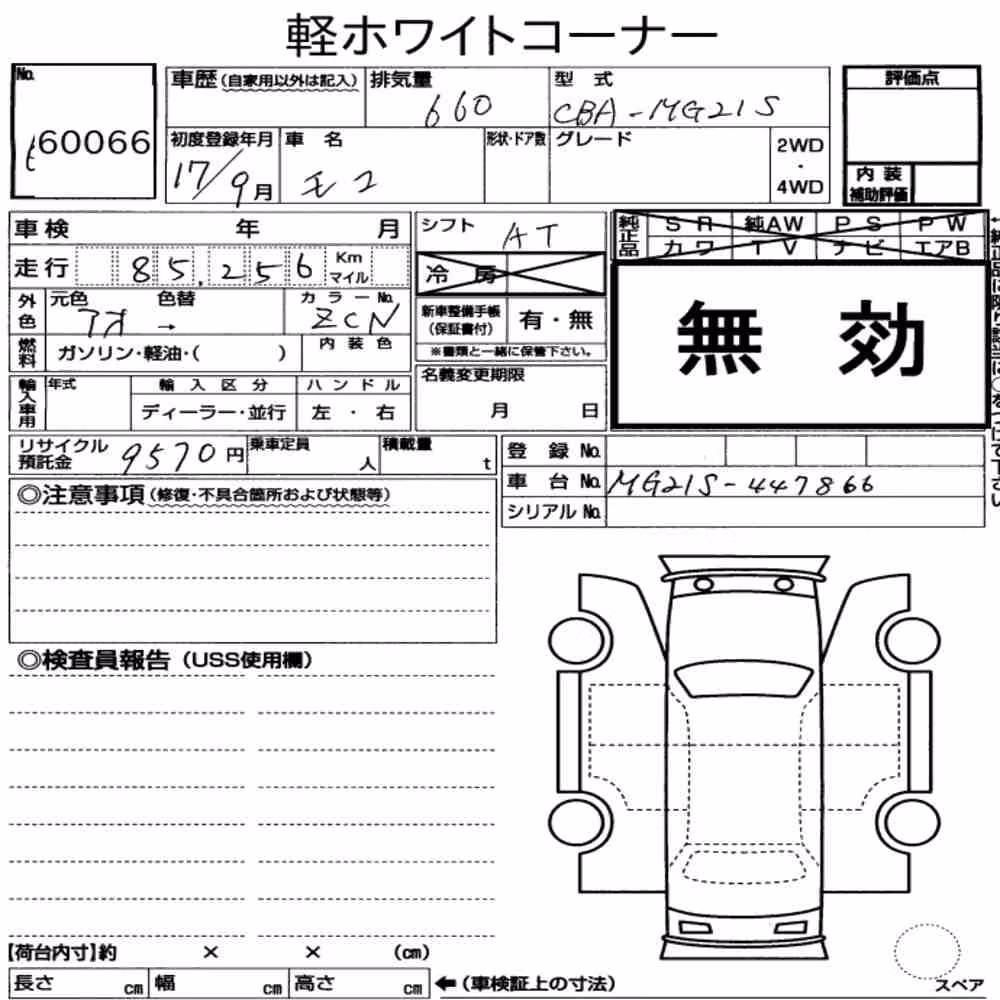 軽ホワイトコーナー
No.
60066
車歴(自家用以外は記入)
排気量
660
型 式
CBA-MG21S
評価点
初度登録年月
17/9月
車 名
モコ
形状・ドア数
グレード
2WD
・
4WD
内 装
補助評価
車検 年 月
走行 85,256 Km
マイル
外色
元色 色替
アオ →
カラーNo.
ZCN
燃料
ガソリン・軽油・( )
内 装 色
輸入車用
年式
輸 入 区 分
ディーラー・並行
ハ ン ド ル
左 ・ 右
シフト
AT
冷 房
新車整備手帳
(保証書付)
有・無
※書類と一緒に保管下さい。
名義変更期限
月 日
純正品
S R 純AW P S P W
カ ワ T V ナ ビ エアB
無 効
リサイクル
預託金
9570円
乗車定員
人
積載量
t
登 録 No.
車 台 No. MG21S-447866
シリアル No.
◎注意事項(修復・不具合箇所および状態等)
◎検査員報告(USS使用欄)
【荷台内寸】約 × × (cm)
長さ cm 幅 cm 高さ cm
←(車検証上の寸法)
スペア